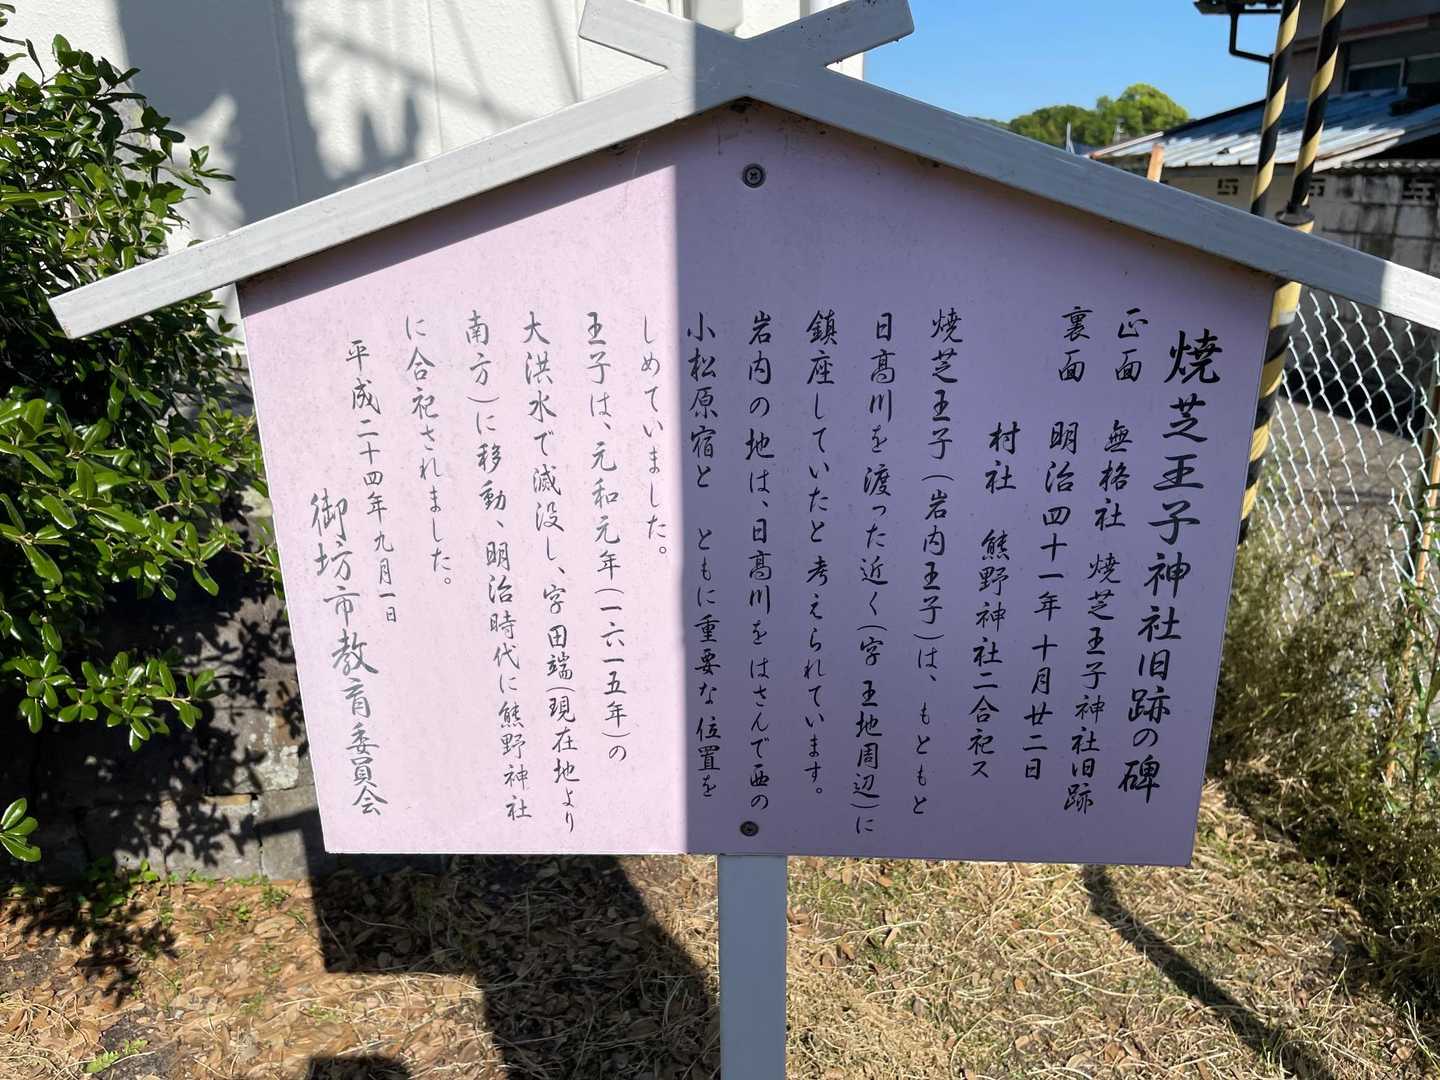 焼芝王子神社旧跡の碑
正面　無格社　焼芝王子神社旧跡
裏面　明治四十一年十月廿二日
村社　熊野神社二合祀ス
焼芝王子（岩内王子）は、もともと
日高川を渡った近く（字　王地周辺）に
鎮座していたと考えられています。
岩内の地は、日高川をはさんで西の
小松原宿と　ともに重要な位置を
しめていました。
王子は、元和元年（一六一五年）の
大洪水で滅没し、字田端（現在地より
南方）に移動、明治時代に熊野神社
に合祀されました。
平成二十四年九月一日
御坊市教育委員会